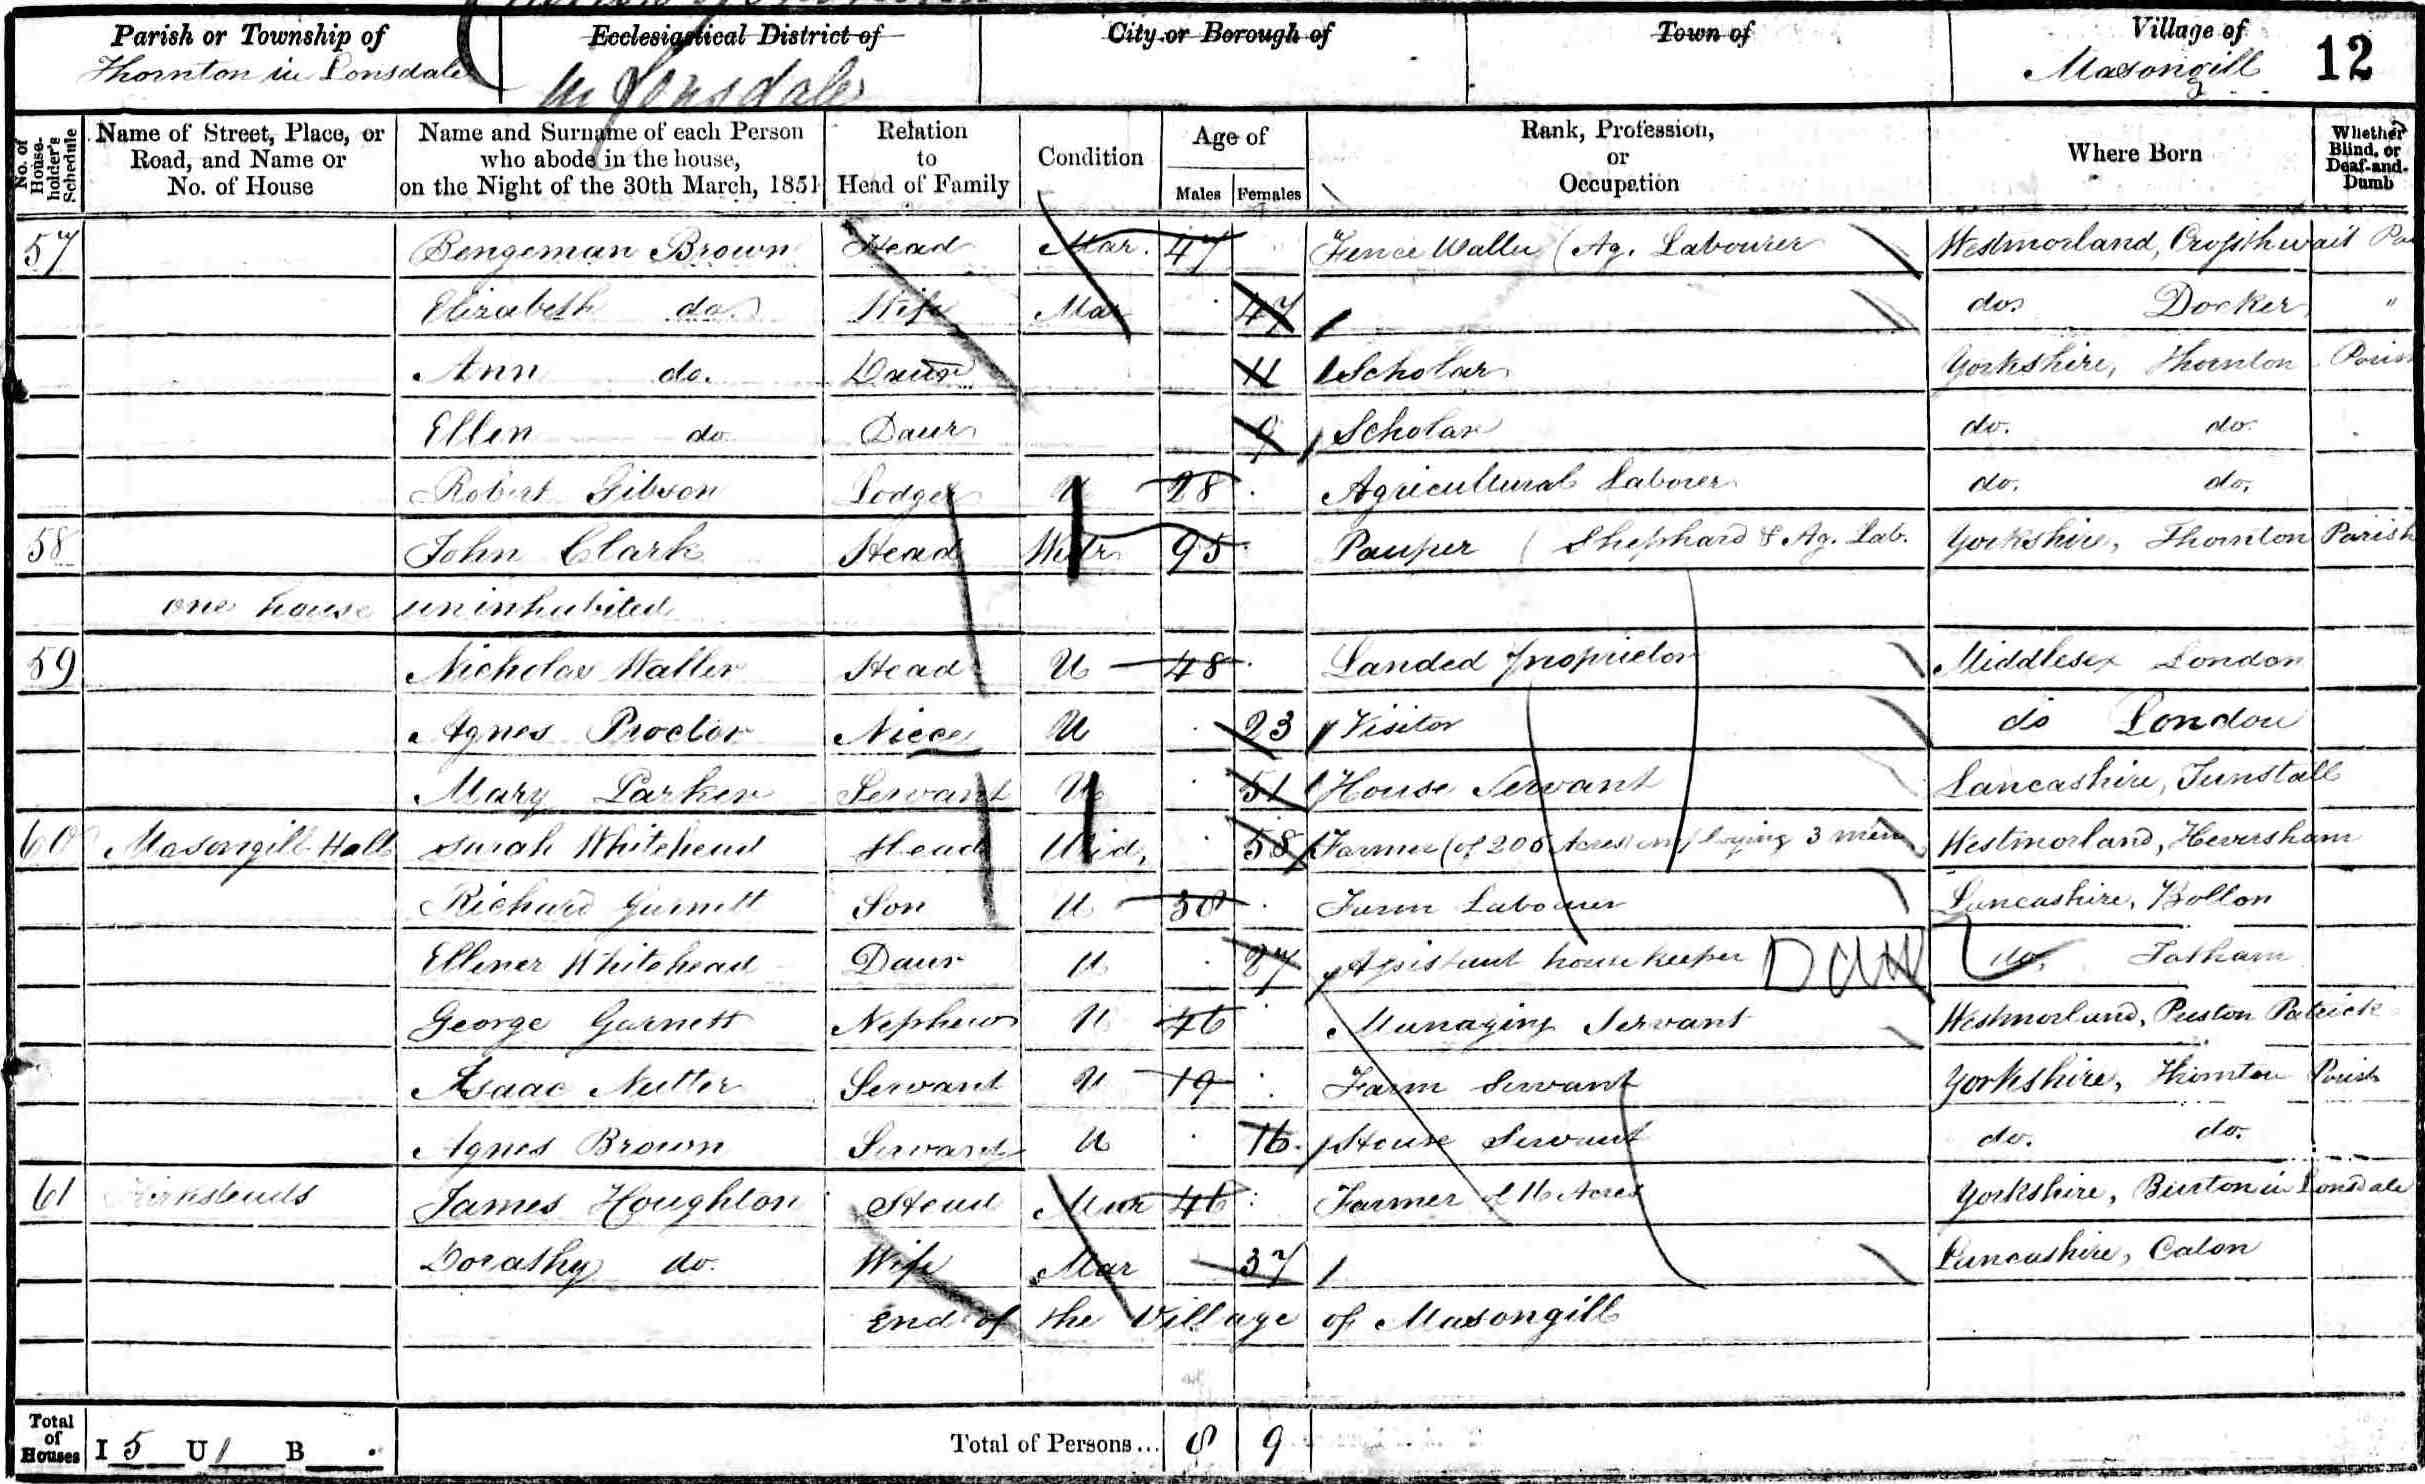 Parish or Township of Ecclesiastical District of City or Borough of Town of Village of
Thornton in Lonsdale in Lonsdale Masongill 12
No. of House-holder's Schedule
Name of Street, Place, or Road, and Name or No. of House
Name and Surname of each Person who abode in the house, on the Night of the 30th March, 1851
Relation to Head of Family
Condition
Age of
Males Females
Rank, Profession, or Occupation
Where Born
Whether Blind, or Deaf-and-Dumb
57 Bengeman Brown Head Mar. 47 Fence Waller (Ag. Labourer Westmorland, Crosthwait Pa
Elizabeth do. Wife Mar 47 do. Docker "
Ann do. Daur 11 Scholar Yorkshire, Thornton Parish
Ellen do Daur 9 Scholar do. do.
Robert Gibson Lodger U 28 Agricultural Laborer do. do.
58 John Clark Head Widr 95 Pauper (Shephard & Ag. Lab. Yorkshire, Thornton Parish
one house uninhabited
59 Nicholas Waller Head U 48 Landed proprietor Middlesex London
Agnes Proctor Niece U 23 Visitor do London
Mary Parker Servant U 51 House Servant Lancashire, Tunstall
60 Masongill Hall Sarah Whitehead Head Wid. 58 Farmer (of 205 Acres employing 3 men Westmorland, Heversham
Richard Garnett Son U 30 Farm Labourer Lancashire, Bolton
Ellener Whitehead Daur U 27 Assistant house keeper Daur do. Tatham
George Garnett Nephew U 46 Managing Servant Westmorland, Preston Patrick
Isaac Nutter Servant U 19 Farm Servant Yorkshire, Thornton Parish
Agnes Brown Servant U 16 House Servant do. do.
61 James Houghton Head Mar 46 Farmer of 16 Acres Yorkshire, Burton in Lonsdale
Dorathy do. Wife Mar 37 Lancashire, Caton
End of the Village of Masongill
Total of Houses I 5 U 1 B Total of Persons... 8 9